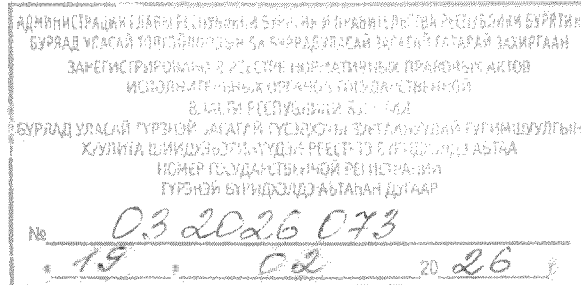 АДМИНИСТРАЦИЯ ГЛАВЫ РЕСПУБЛИКИ БУРЯТИЯ И ПРАВИТЕЛЬСТВА РЕСПУБЛИКИ БУРЯТИЯ
БУРЯАД УЛАСАЙ ЗАСАГАЙ ГАЗАРАЙ ЗАХИРГААН
ЗАРЕГИСТРИРОВАНО В РЕЕСТРЕ НОРМАТИВНЫХ ПРАВОВЫХ АКТОВ
ИСПОЛНИТЕЛЬНЫХ ОРГАНОВ ГОСУДАРСТВЕННОЙ
ВЛАСТИ РЕСПУБЛИКИ БУРЯТИЯ
БУРЯАД УЛАСАЙ ГҮРЭНЭЙ ЗАСАГАЙ
РЕЕСТР
НОМЕР ГОСУДАРСТВЕННОЙ РЕГИСТРАЦИИ
ГҮРЭНЭЙ ДУГААР
№ 03 2026 073
" 19 " 02 20 26 г